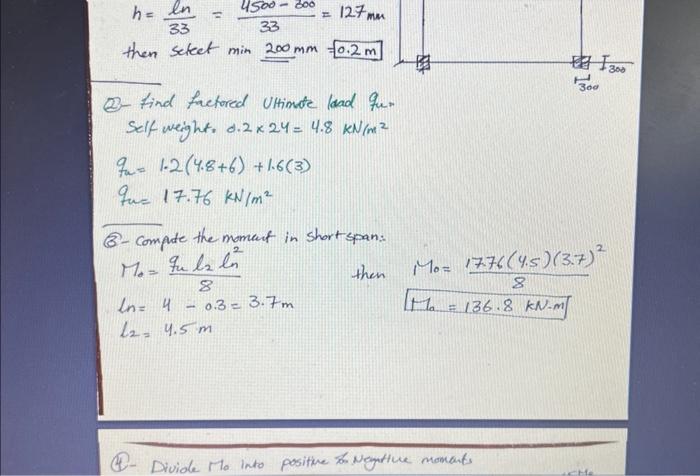 h = ln/33 = 4500 - 300/33 = 127 mm
then select min 200 mm = 0.2 m
300
300
②- find factored Ultimate load qu.
Self weight. 0.2 x 24 = 4.8 kN/m²
qu = 1.2(4.8+6) + 1.6(3)
qu = 17.76 kN/m²
③- compute the moment in short span:
Mo = qu l2 ln²/8
then Mo = 17.76(4.5)(3.7)²/8
ln = 4 - 0.3 = 3.7m
Mo = 136.8 kN.m
l2 = 4.5 m
④- Divide Mo into positive & Negative moments